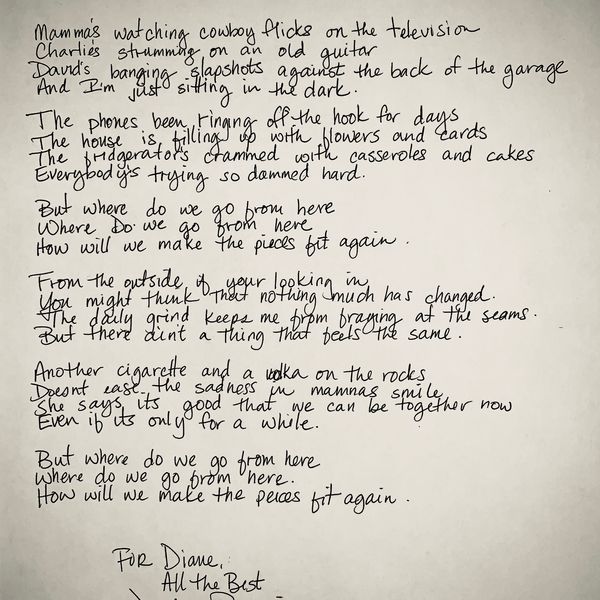 Mamma's watching cowboy flicks on the television
Charlie's strumming on an old guitar
David's banging slapshots against the back of the garage
And I'm just sitting in the dark.
The phones been ringing off the hook for days
The house is filling up with flowers and cards
The fridgerator's crammed with casseroles and cakes
Everybody's trying so dammed hard.
But where do we go from here
Where Do we go from here
How will we make the pieces fit again.
From the outside if your looking in
You might think that nothing much has changed.
The daily grind keeps me from fraying at the seams.
But there ain't a thing that feels the same.
Another cigarette and a vodka on the rocks
Doesnt ease the sadness in mammas smile
She says its good that we can be together now
Even if its only for a while.
But where do we go from here
where do we go from here.
How will we make the peices fit again.
FOR Diane,
All the Best